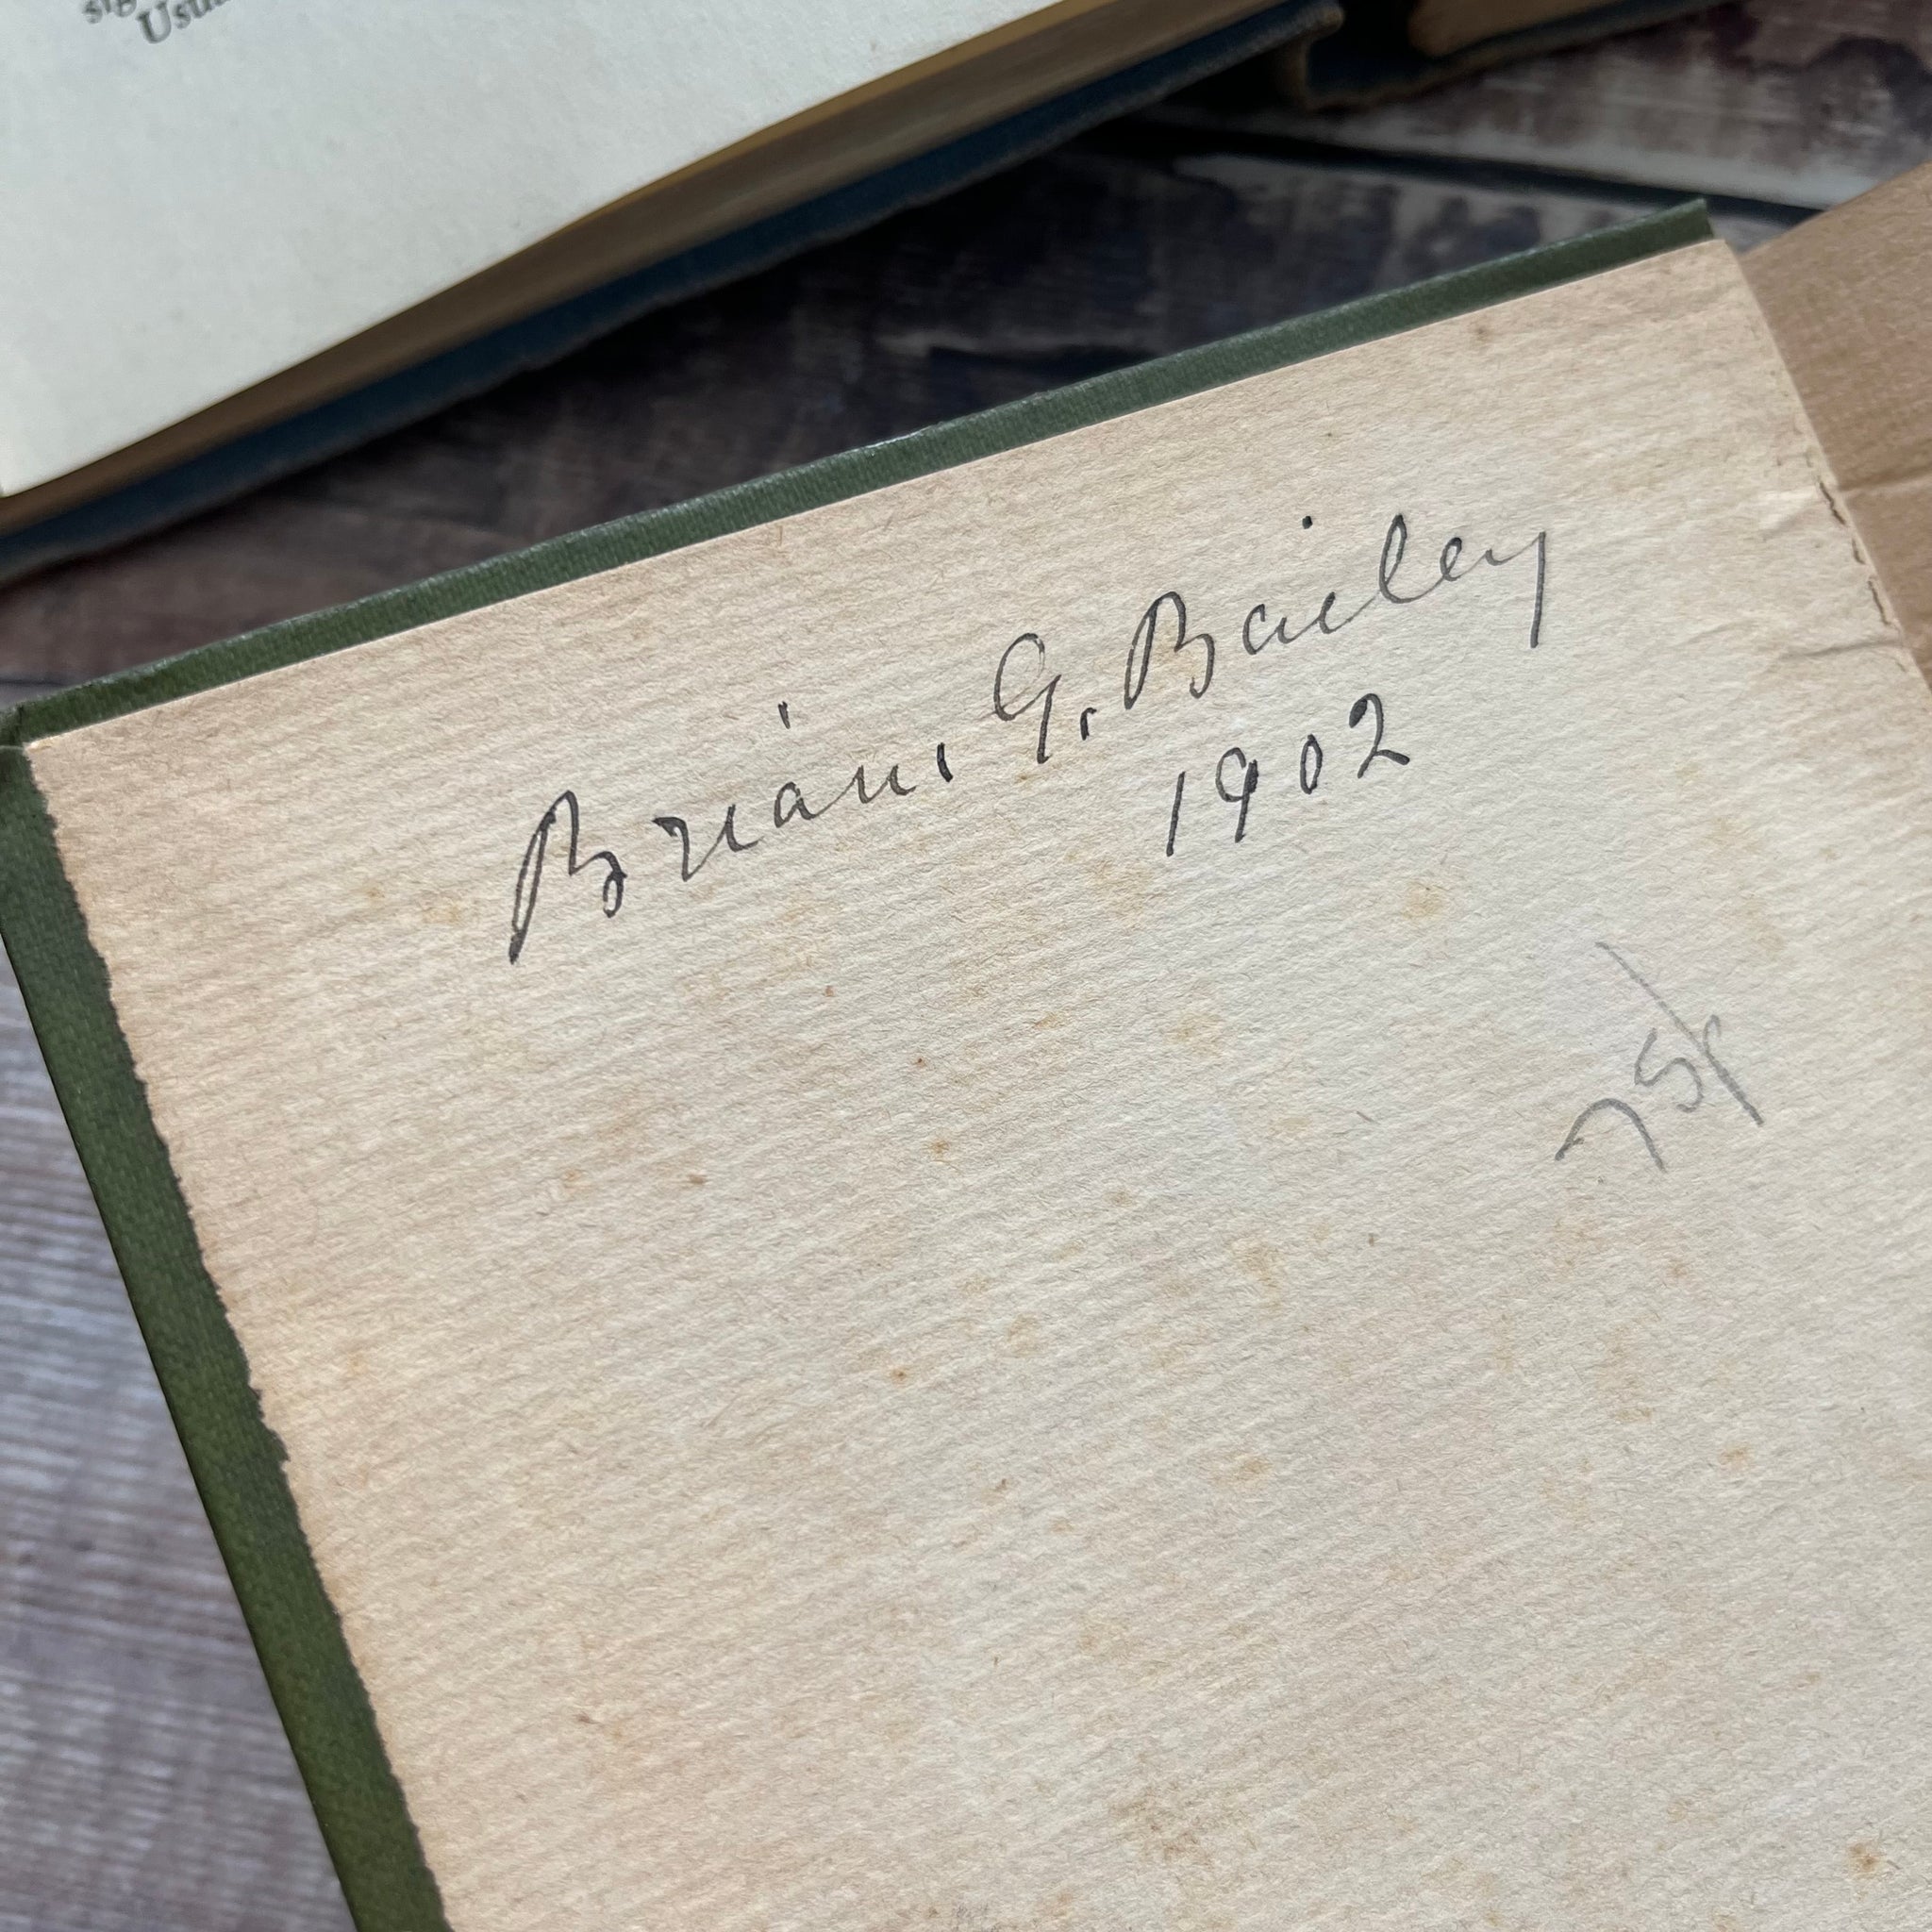 Usu
Brian. G. Bailey
1902
75/